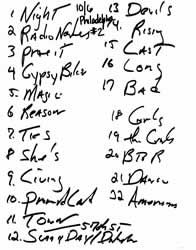 1 Night
10/6
Philadelphia
2 Radio Nowhere #2
3 Prove it
4 Gypsy Biker
5. Magic
6 Reason
7. Ties
8 She's
9. Living
10. Promised Land
11 Town
12. Scary Day / Darken
13 Devil's
14. Rising
15 Last
16 Long
17 Bad
18 Girls
19 the Ends
20 BTR
21 Dancin
22 American